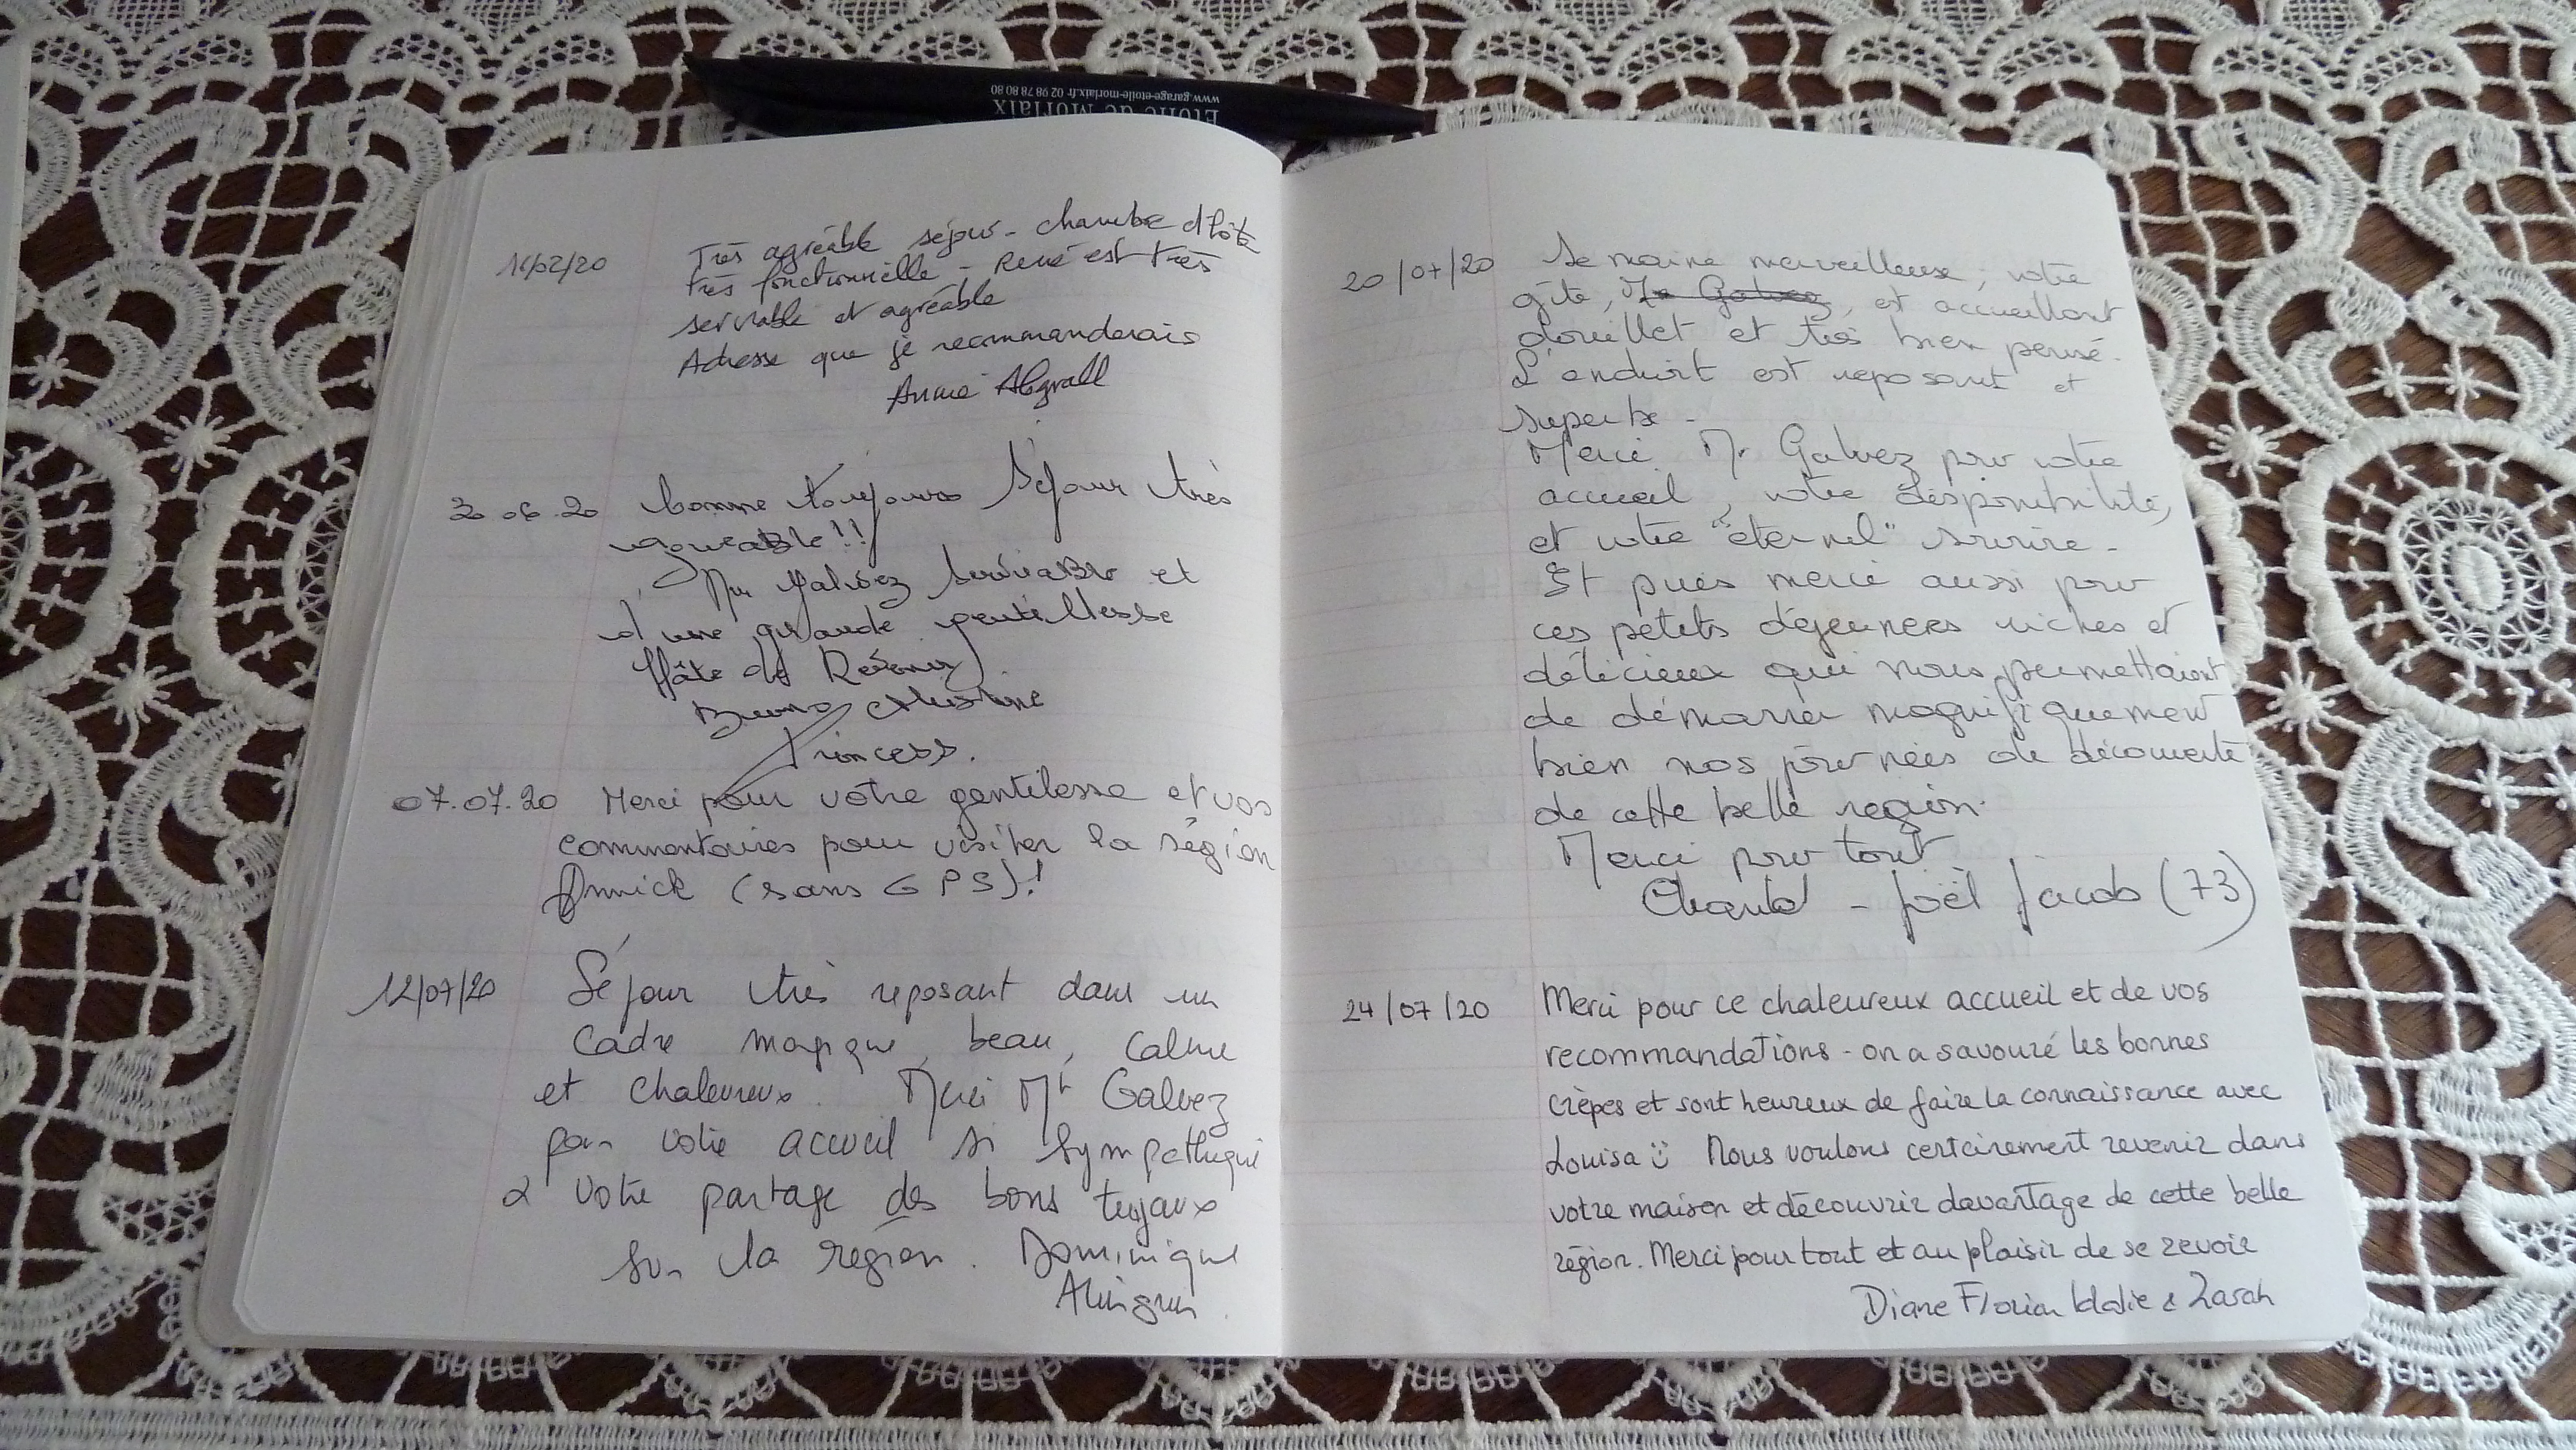 www.garage-etoile-morlaix.fr 02 98 78 80 80
Etoile de Morlaix
16/02/20 Très agréable séjour - chambre d'hôte
très fonctionnelle - René est très
serviable et agréable
Adresse que je recommanderais
Annie Abgrall
30.06.20 Comme toujours Séjour très
agréable!!
Mr Galvez serviable et
d'une grande gentillesse
Hâte de Revenir
Bruno Christine
Princess.
07.07.20 Merci pour votre gentilesse et vos
commentaires pour visiter la région
Annick (sans GPS)!
12/07/20 Séjour très reposant dans un
Cadre magique, beau, calme
et chaleureux. Merci Mr Galvez
pour votre accueil si sympathique
& votre partage des bons tuyaux
sur la région. Dominique
20/07/20 Semaine merveilleuse, votre
gîte, Mr Galvez, et accueillant
douillet et très bien pensé.
L'endroit est reposant et
superbe -
Merci Mr Galvez pour votre
accueil, votre disponibilité,
et votre "éternel" sourire -
Et puis merci aussi pour
ces petits déjeuners riches et
délicieux qui nous permettaient
de démarrer magnifiquement
bien nos journées de découverte
de cette belle région.
Merci pour tout
Chantal - Joël Jacob (73)
24/07/20 Merci pour ce chaleureux accueil et de vos
recommandations - on a savouré les bonnes
crêpes et sont heureux de faire la connaissance avec
Louisa :) Nous voulons certainement revenir dans
votre maison et découvrir davantage de cette belle
région. Merci pour tout et au plaisir de se revoir
Diane Florian & Zarah